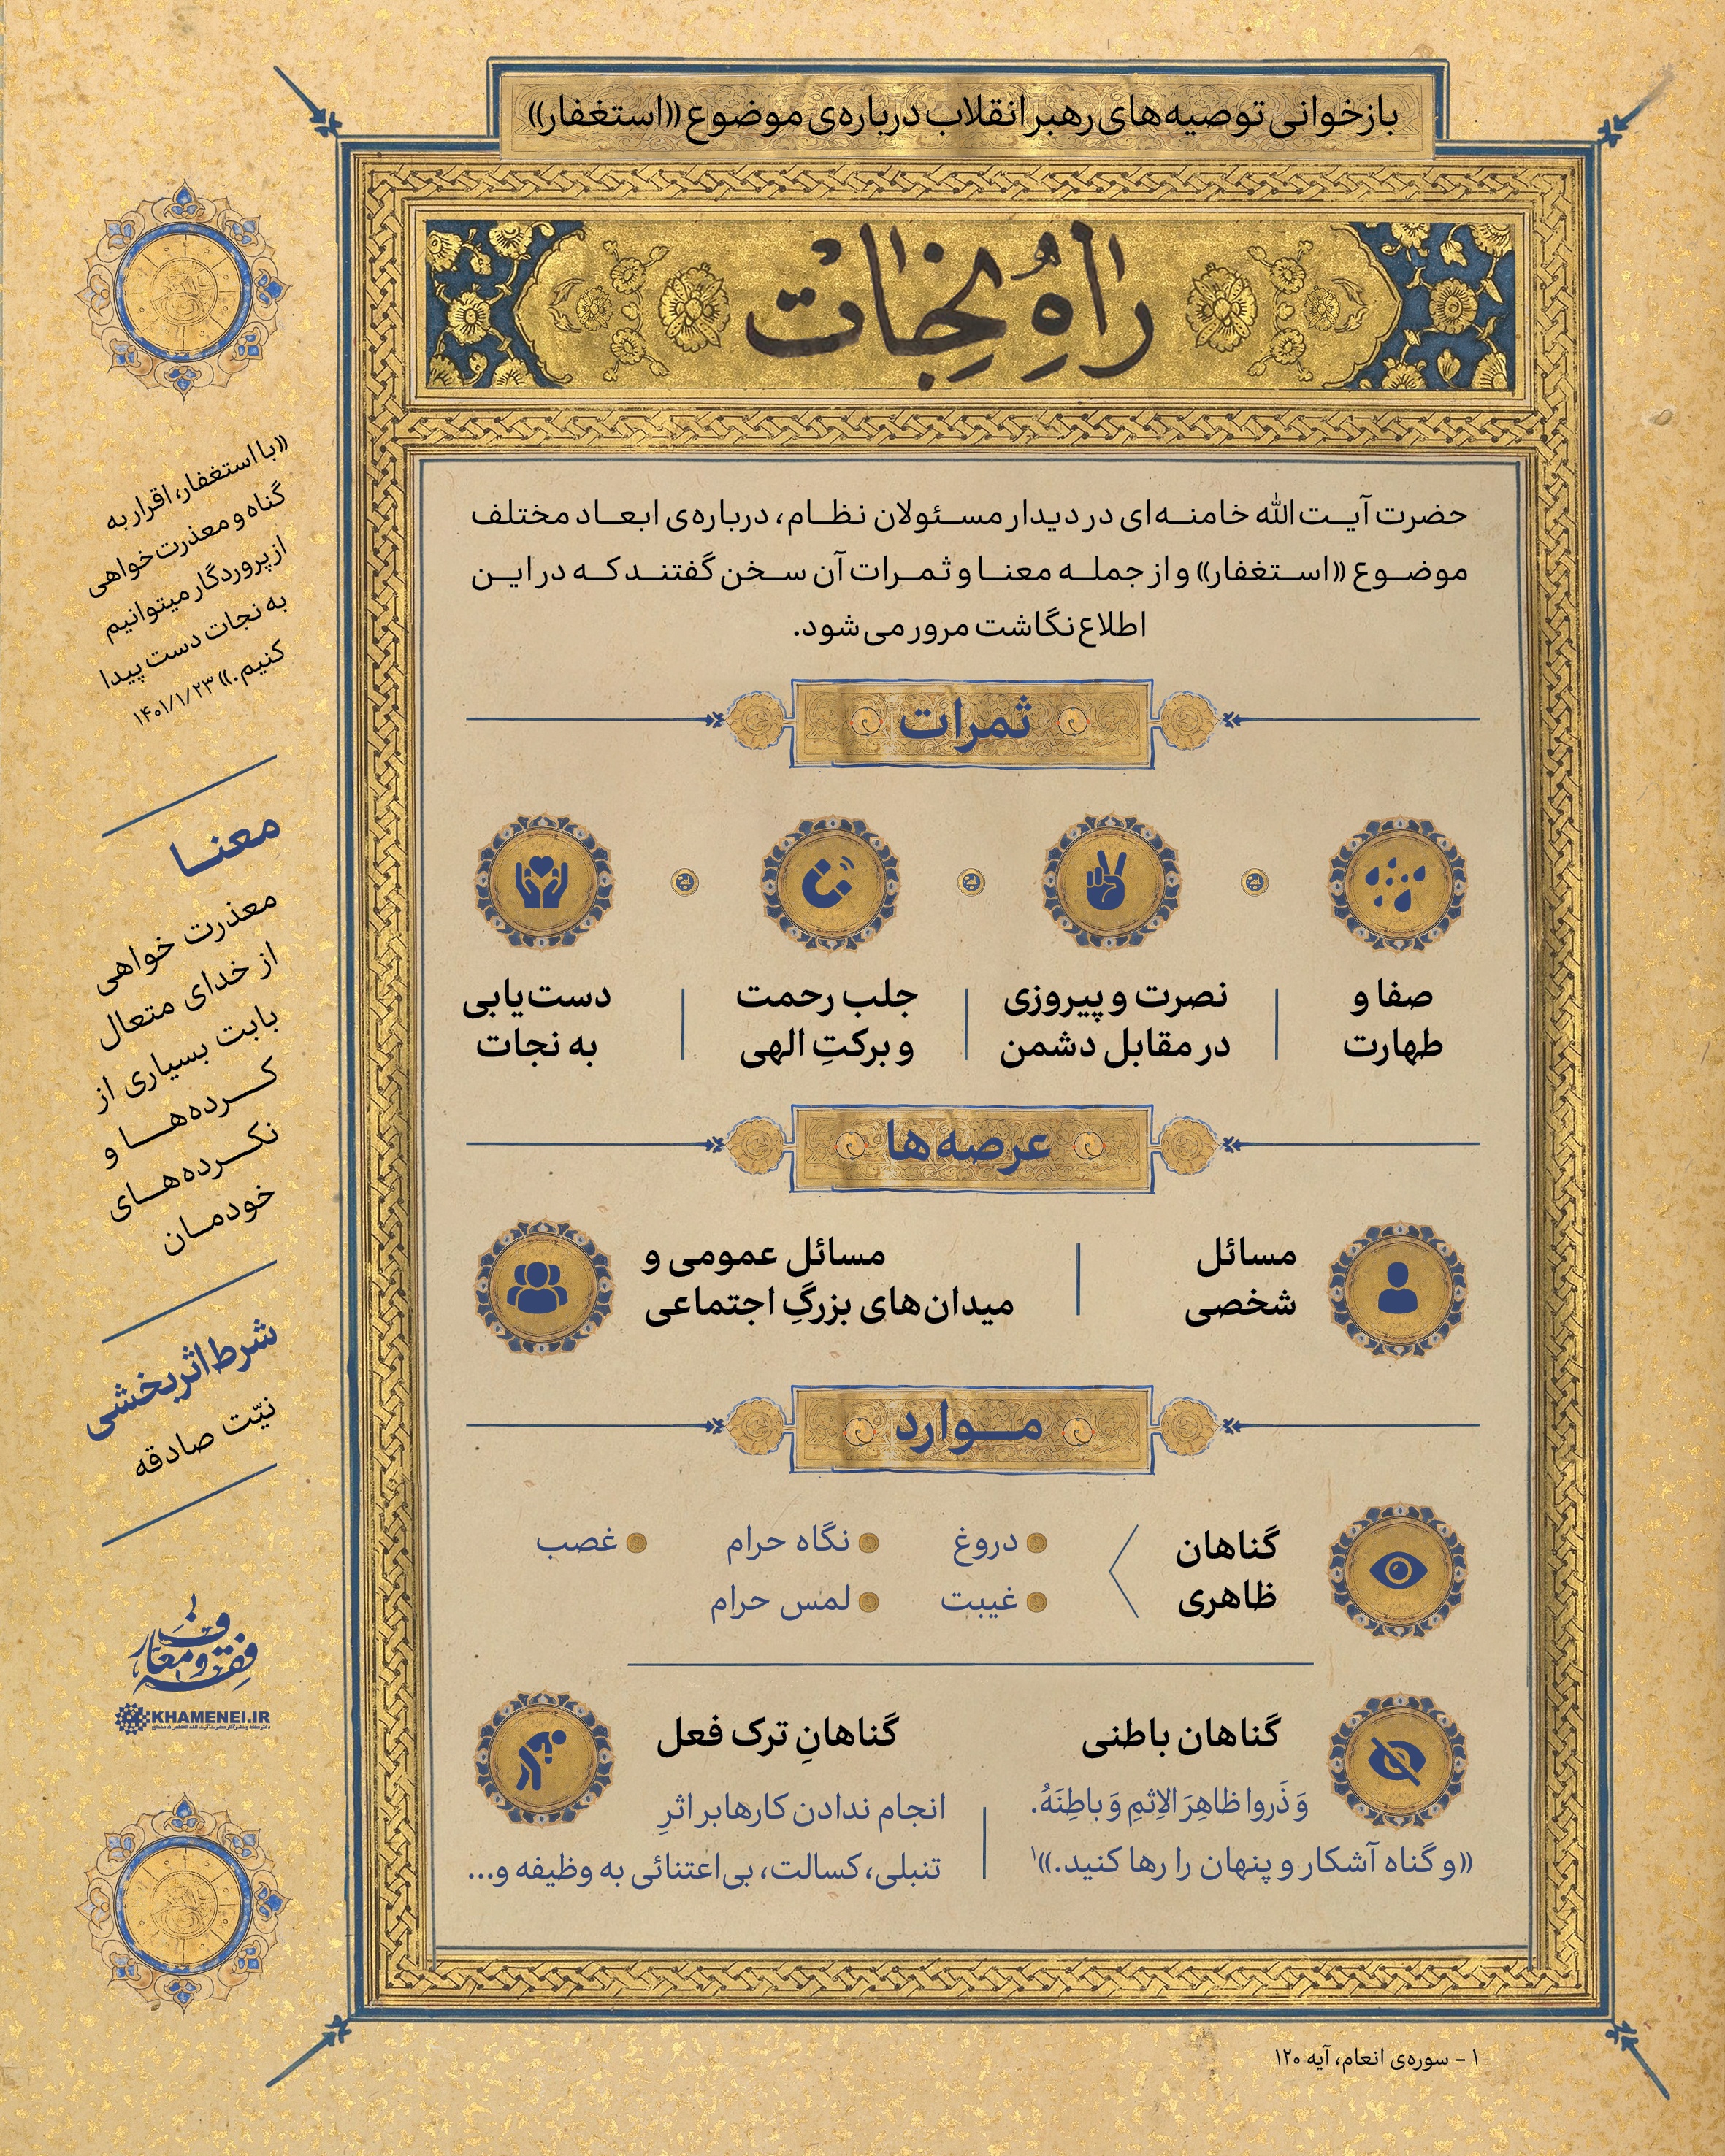 بازخوانی توصیه‌های رهبر انقلاب درباره‌ی موضوع «استغفار»
راهِ نجات
حضرت آیت‌الله خامنه‌ای در دیدار مسئولان نظام، درباره‌ی ابعاد مختلف
موضوع «استغفار» و از جمله معنا و ثمرات آن سخن گفتند که در این
اطلاع‌نگاشت مرور می‌شود.
ثمرات
صفا و
طهارت
نصرت و پیروزی
در مقابل دشمن
جلب رحمت
و برکتِ الهی
دست‌یابی
به نجات
عرصه‌ها
مسائل
شخصی
مسائل عمومی و
میدان‌های بزرگِ اجتماعی
موارد
گناهان
ظاهری
دروغ
غیبت
نگاه حرام
لمس حرام
غصب
گناهان باطنی
وَ ذَروا ظاهِرَ الاِثمِ وَ باطِنَهُ.
«و گناه آشکار و پنهان را رها کنید.»۱
گناهانِ ترک فعل
انجام ندادن کارها بر اثرِ
تنبلی، کسالت، بی‌اعتنائی به وظیفه و...
۱ - سوره‌ی انعام، آیه ۱۲۰
«با استغفار، اقرار به
گناه و معذرت‌خواهی
از پروردگار میتوانیم
به نجات دست پیدا
کنیم.» ۱۴۰۱/۱/۲۳
معنا
معذرت خواهی
از خدای متعال
بابت بسیاری از
کرده‌ها و
نکرده‌های
خودمان
شرط اثربخشی
نیّت صادقه
فقه و معارف
KHAMENEI.IR